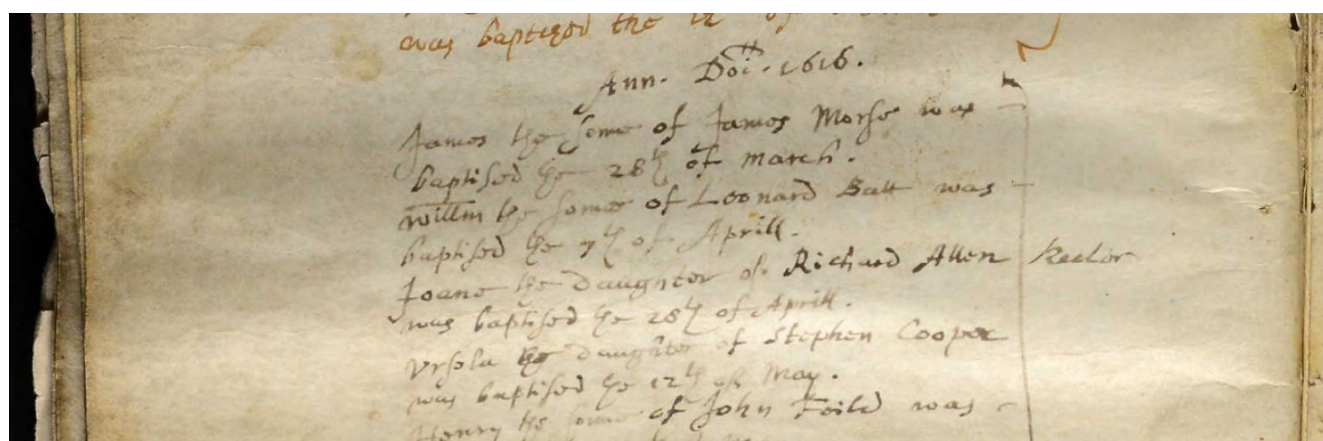 was baptized the 12 of
Ann. Doi. 1616.
James the sonne of James Morse was
baptised the 28th of march.
willm the sonne of Leonard Batt was
baptised the 7th of Aprill.
Joane the daughter of Richard Allen Rector
was baptised the 28th of Aprill.
Ursola the daughter of Stephen Cooper
was baptised the 12th of May.
Henry the sonne of John Feild was